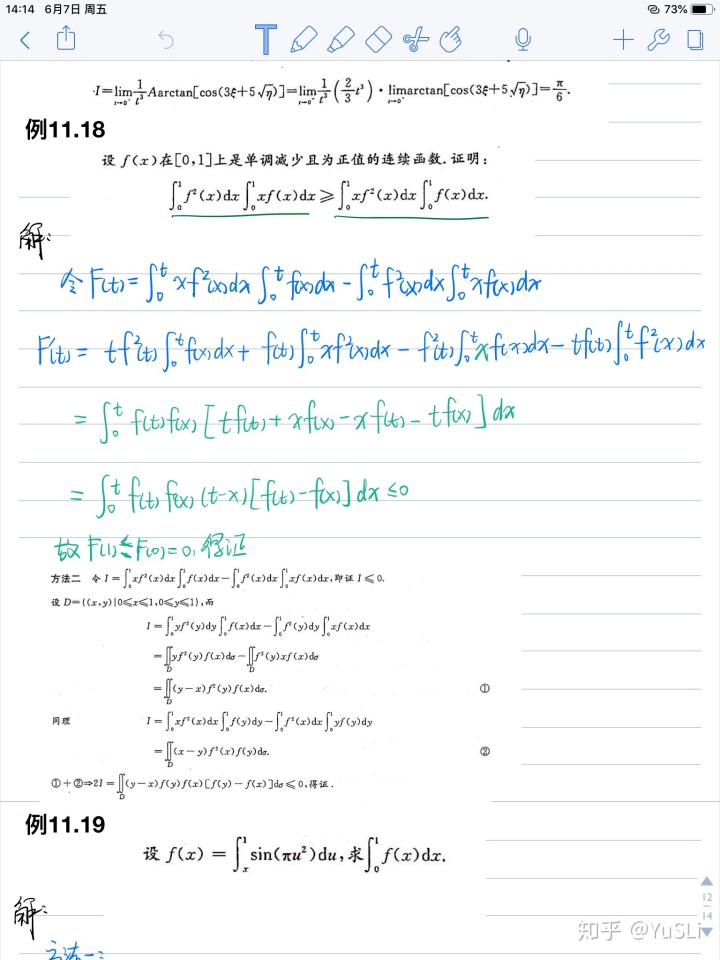 14:14 6月7日 周五
73%
I=lim_{t→0⁺} 1/t³ A arctan[cos(3ξ+5√η)]=lim_{t→0⁺} 1/t³ (2/3 t³)·lim_{t→0⁺} arctan[cos(3ξ+5√η)]=π/6.
例11.18
设 f(x)在[0,1]上是单调减少且为正值的连续函数.证明:
∫₀¹f²(x)dx∫₀¹xf(x)dx≥∫₀¹xf²(x)dx∫₀¹f(x)dx.
解:
令 F(t)=∫₀ᵗ xf²(x)dx ∫₀ᵗ f(x)dx - ∫₀ᵗ f²(x)dx∫₀ᵗ xf(x)dx
F'(t) = tf²(t)∫₀ᵗ f(x)dx + f(t)∫₀ᵗ xf²(x)dx - f²(t)∫₀ᵗ xf(x)dx - tf(t)∫₀ᵗ f²(x)dx
= ∫₀ᵗ f(t)f(x)[tf(t)+xf(x)-xf(t)-tf(x)]dx
= ∫₀ᵗ f(t)f(x)(t-x)[f(t)-f(x)]dx ≤0
故 F(1)≤F(0)=0, 得证
方法二 令 I=∫₀¹xf²(x)dx∫₀¹f(x)dx-∫₀¹f²(x)dx∫₀¹xf(x)dx,即证 I≤0.
设 D={(x,y)|0≤x≤1,0≤y≤1},而
I=∫₀¹yf²(y)dy∫₀¹f(x)dx-∫₀¹f²(y)dy∫₀¹xf(x)dx
=∬_D yf²(y)f(x)dσ-∬_D f²(y)xf(x)dσ
=∬_D (y-x)f²(y)f(x)dσ. ①
同理 I=∫₀¹xf²(x)dx∫₀¹f(y)dy-∫₀¹f²(x)dx∫₀¹yf(y)dy
=∬_D (x-y)f²(x)f(y)dσ. ②
①+②⇒2I=∬_D (y-x)f(y)f(x)[f(y)-f(x)]dσ≤0,得证.
例11.19
设 f(x)=∫ₓ¹sin(πu²)du,求∫₀¹f(x)dx.
解:
方法一:
12
14
知乎 @YuSLi